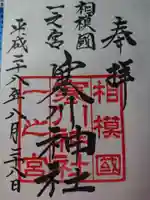 奉拝
相模國
一之宮
寒川神社
平成二八年八月二八日
相模國
寒川神社
一之宮